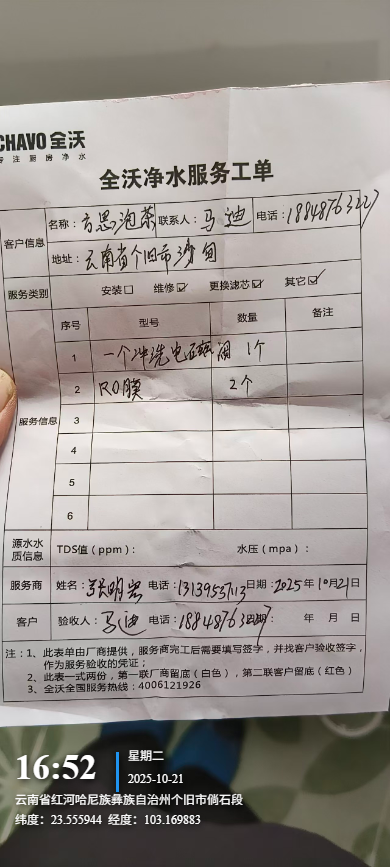 CHAVO 全沃
专注厨房净水
全沃净水服务工单
客户信息 名称：方思泡菜 联系人：马迪 电话：18848763227
地址：云南省个旧市沙甸
服务类别 安装□ 维修☑ 更换滤芯☑ 其它☑
服务信息 序号 型号 数量 备注
1 一个冲洗电磁阀 1个
2 RO膜 2个
3
4
5
6
源水水质信息 TDS值（ppm）： 水压（mpa）：
服务商 姓名： 明 电话： 日期：2025年10月21日
客户 验收人：马迪 电话：18848763 日期： 年 月 日
注：1、此表单由厂商提供，服务商完工后需要填写签字，并找客户验收签字，
作为服务验收的凭证；
2、此表一式两份，第一联厂商留底（白色），第二联客户留底（红色）
3、全沃全国服务热线：4006121926
16:52 星期二
2025-10-21
云南省红河哈尼族彝族自治州个旧市倘石段
纬度：23.555944 经度：103.169883